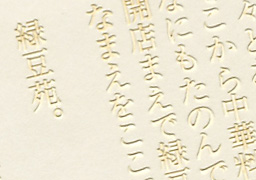 ここから中華料
なにもたのんで
開店まえで緑豆
なまえをここ
緑豆苑。